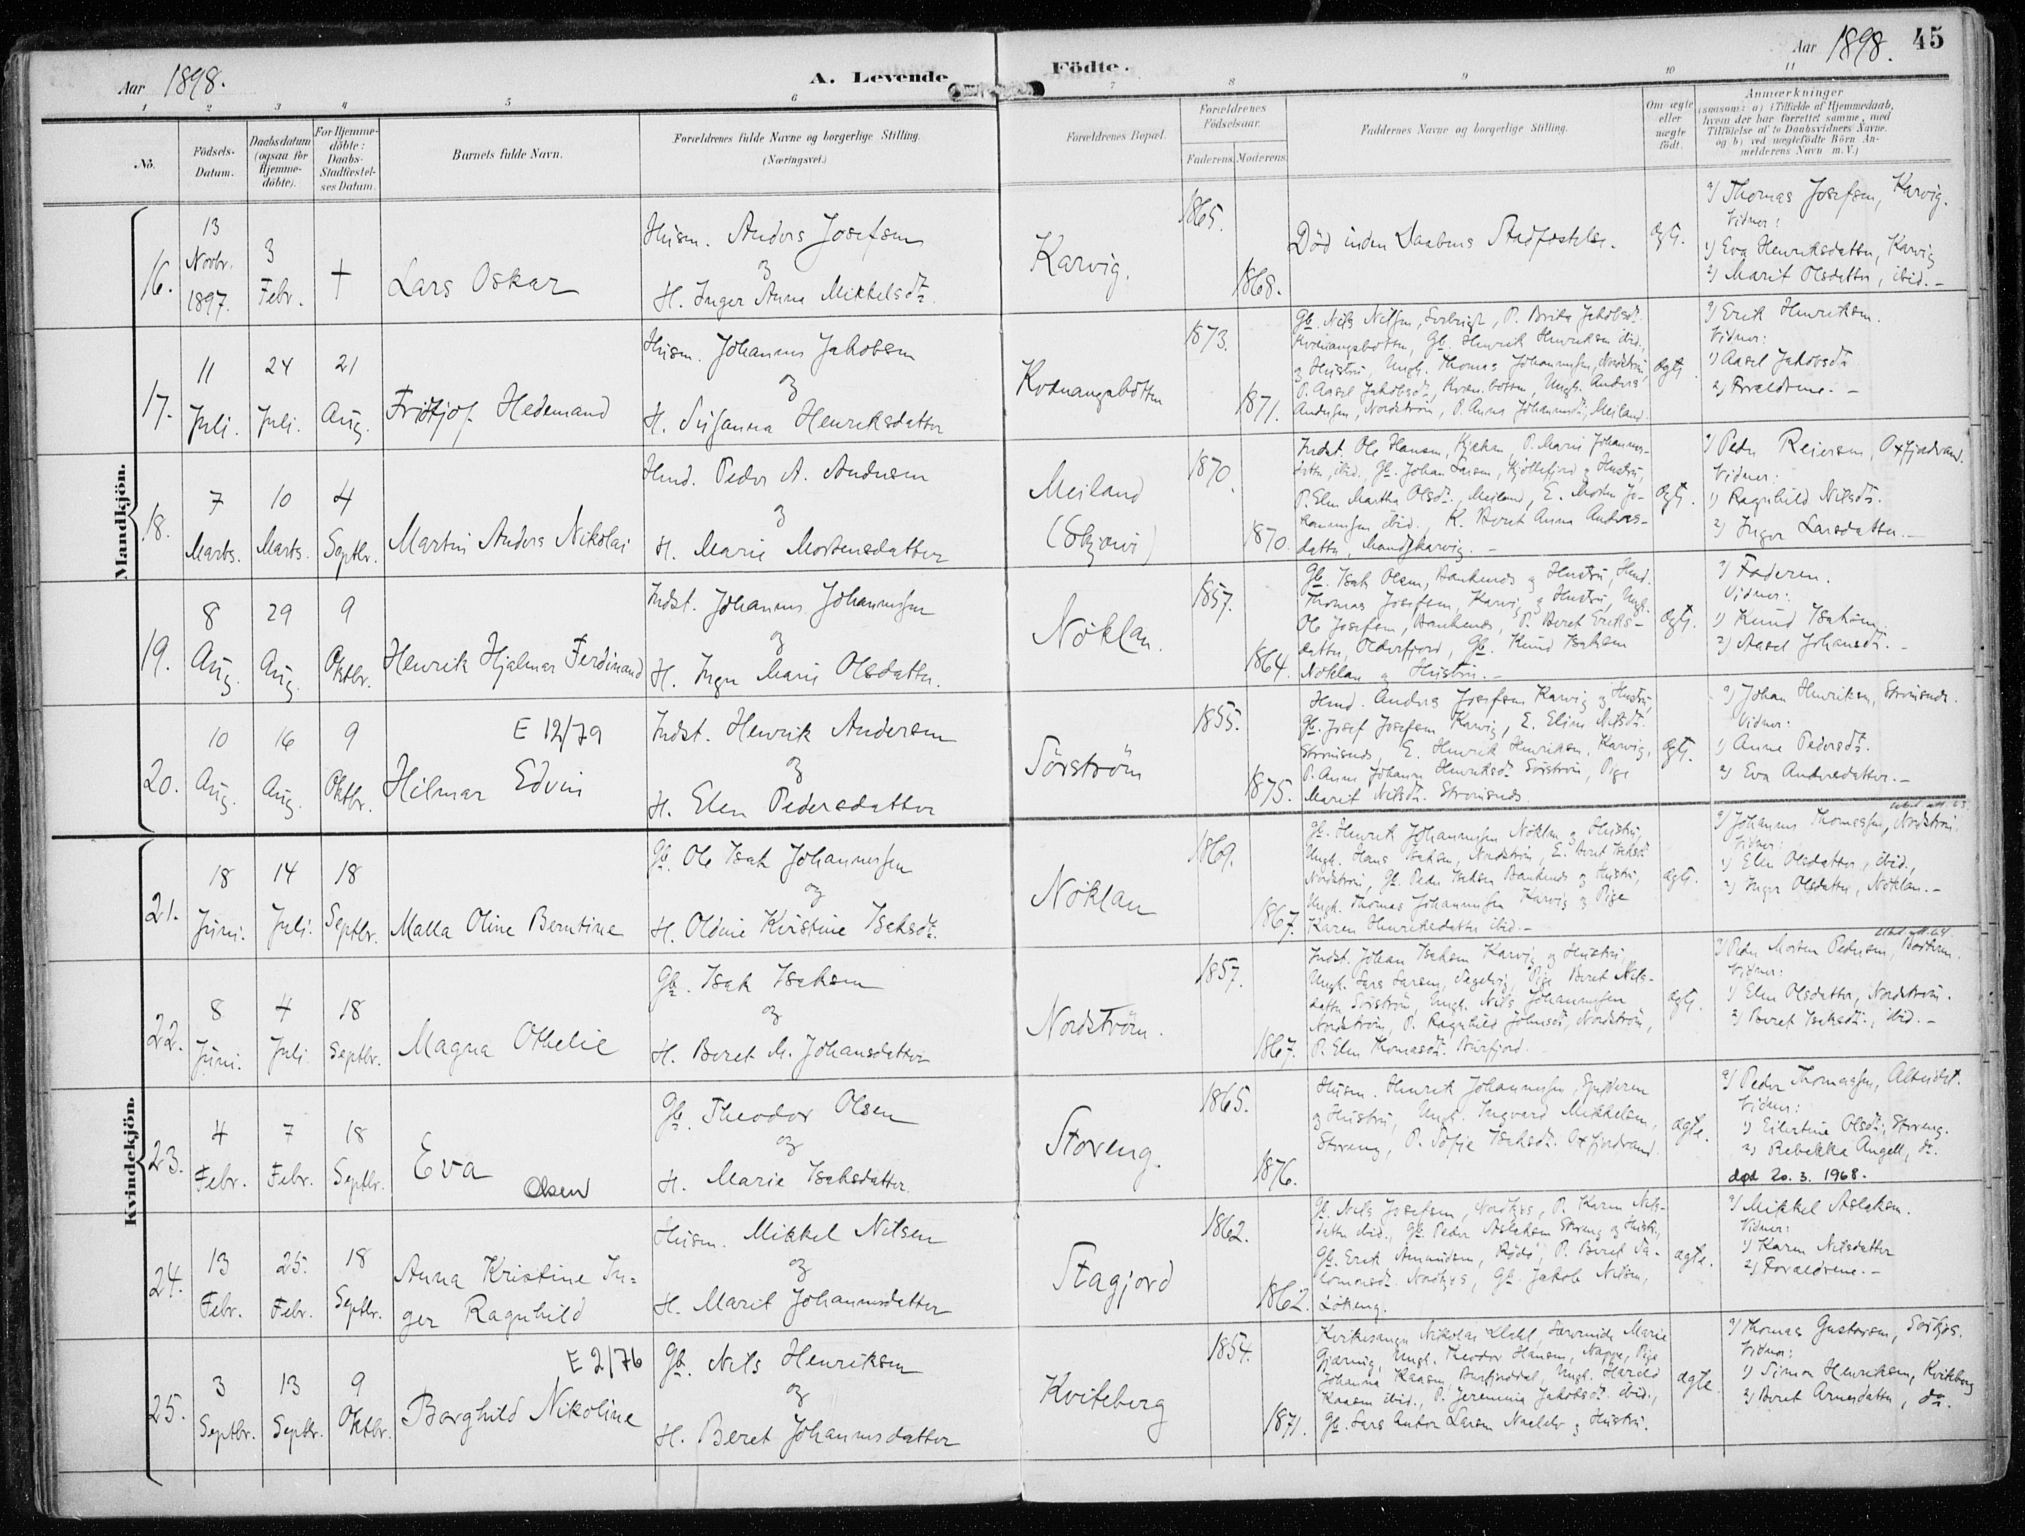 Aar 1898.
A. Levende
Födte.
Aar 1898.
45
1 2 3 4 5 6 7 8 9 10 11
No.
Födsels-Datum.
Daabsdatum (ogsaa for Hjemme-döbte).
For Hjemme-döbte: Daabs-Stadfæstel-ses Datum.
Barnets fulde Navn.
Forældrenes fulde Navne og borgerlige Stilling.
(Næringsvei.)
Forældrenes Bopæl.
Forældrenes Födselsaar.
Faderens. Moderens.
Faddernes Navne og borgerlige Stilling.
Om ægte eller uægte födt.
Anmærkninger
(saasom: a) i Tilfælde af Hjemmedaab, hvem der har forrettet samme, med Tilföielse af to Daabsvidners Navne, og b) ved uægtefödte Börn An-melderens Navn m. V.)
Mandkjön.
16.
13 Novbr. 1897.
3 Febr.
†
Lars Oskar
Husm. Anders Josefsen
og
H. Inger Anna Mikkelsdtr.
Karvig.
1865.
1868.
Död inden Daabens Stadfæstelse.
ægte.
a) Thomas Josefsen, Karvig.
Vidner:
1) Eva Henriksdatter, Karvig
2) Marit Olsdatter, ibid. -
17.
11 Juli.
24 Juli.
21 Aug.
Fridtjof Hedemand
Husm. Johannes Jakobsen
og
H. Susanna Henriksdatter
Kvænangsbotten
1873.
1871.
Gb. Nils Nilsen, P. Brita Jakobsdtr.
Kvænangsbotten, Gb. Henrik Henriksen ibid.,
og Hustru, Ungk. Thomas Johannessen, Nordström,
P. Aasel Jakobsdtr., Kvæn.botten, Ungk. Anders
Andersen, Nordström, P. Anna Johannesdtr., Meiland
ægte.
a) Erik Henriksen.
Vidner:
1) Aasel Jakobsdtr.
2) Forældrene. -
18.
7 Marts.
10 Marts.
4 Septbr.
Martin Anders Nikolai
Husm. Peder A. Andersen
og
H. Marie Mortensdatter
Meiland
1870.
1870.
Indst. Ole Hansen, P. Marie Johannes-
datter, ibid., Gb. Johan Larsen, Kjöllefjord og Hustru,
P. Elen Martha Olsdtr., Meiland, E. Morten Jo-
hannessen ibid., K. Beret Anna Anders-
datter, -
ægte.
a) Peder Reiersen, Oxfjordvand.
Vidner:
1) Ragnhild Nilsdtr.
2) Inger Larsdatter. -
19.
8 Aug.
29 Aug.
9 Oktbr.
Henrik Hjalmar Ferdinand
Indst. Johannes Johannessen
og
H. Inger Marie Olsdatter.
Nöklan.
1857.
1864.
Gb. Isak Olsen, og Hustru, Husm.
Thomas Josefsen, Karvig og Hustru, Ungk.
Ole Josefsen, P. Beret Eriks-
datter, Olderfjord, Gb. Knud Isaksen
Nöklan og Hustru. -
ægte.
a) Faderen.
Vidner:
1) Knud Isaksen
2) Aasel Johansdtr. -
20.
10 Aug.
16 Aug.
9 Oktbr.
E 12/79
Hilmar Edvin
Indst. Henrik Andersen
og
H. Elen Pedersdatter
Sörström
1855.
1875.
Husm. Anders Josefsen Karvig og Hustru,
Gb. Josef Josefsen Karvig, E. Eline Nilsdtr.
Strömsnes, E. Henrik Henriksen, Karvig,
P. Anne Johanne Henriksdtr. Sörström, Pige
Marit Nilsdtr. Strömsnes.
ægte.
a) Johan Henriksen, Strömsnes.
Vidner:
1) Anne Pedersdtr.
2) Eva Andersdatter. -
Kvindekjön.
21.
18 Juni.
14 Juli.
18 Septbr.
Malla Oline Berntine
Gb. Ole Isak Johannessen
og
H. Oldine Kristine Isaksdtr.
Nöklan
1869.
1867.
Gb. Henrik Johannessen Nöklan og Hustru,
Ungk. Hans Isaksen, Nordström, E. Beret Isaksdtr.
Nordström, Gb. Peder Isaksen og Hustru,
Ungk. Thomas Johannessen Karvig og Pige
Karen Henriksdatter ibid. -
ægte.
a) Johannes Thomassen, Nordström.
Vidner:
1) Elen Olsdatter, ibid.,
2) Inger Olsdatter, Nöklan. -
22.
8 Juni.
4 Juli.
18 Septbr.
Magna Othelie
Gb. Isak Isaksen
og
H. Beret M. Johansdatter
Nordström.
1857.
1867.
Indst. Johan Isaksen Karvig og Hustru,
Ungk. Lars Larsen, Pige Beret Nils-
datter Sörström, Ungk. Nils Johannessen
Nordström, P. Ragnhild Johnsdtr., Nordström,
P. Elen Thomasdtr. Burfjord.
ægte.
a) Peder Morten Pedersen, Botten.
Vidner:
1) Elen Olsdatter, Nordström.
2) Beret Isaksdtr., ibid. -
23.
4 Febr.
7 Febr.
18 Septbr.
Eva
Olsen
Gb. Theodor Olsen
og
H. Marie Isaksdatter.
Storeng.
1865.
1876.
Husm. Henrik Johannessen,
og Hustru, Ungk. Ingvard Mikkelsen,
Storeng, P. Sofie Isaksdtr. Oxfjordvand.
ægte.
a) Peder Thomassen, Alteidet.
Vidner:
1) Eilertine Olsdtr., Storeng.
2) Rebekka Angell, do.
død 20. 3. 1968.
24.
13 Febr.
25. Febr.
18 Septbr.
Anna Kristine In=
ger Ragnhild
Husm. Mikkel Nilsen
og
H. Marit Johannesdatter
Stagjord
1862.
1862.
Gb. Nils Josefsen, P. Karen Nils-
datter ibid., Gb. Peder Aslaksen Storeng og Hustru,
Gb. Erik Amundsen, P. Beret
Gb. Jakob Nilsen,
Lökeng.
ægte.
a) Mikkel Aslaksen.
Vidner:
1) Karen Nilsdatter
2) Forældrene. -
25.
3 Septbr.
13 Septbr.
9 Oktbr.
E 2/76
Borghild Nikoline
Gb. Nils Henriksen
og
H. Beret Johannesdatter
Kviteberg
1854.
1871.
Kirkesanger Nikolai Dahl, Marie
Gjæver, Ungk. Theodor Hansen, Pige
Johanna Kaasen, Burfjorddal, Ungk. Harald
Kaasen ibid., P. Jeremina Jakobsdtr. ibid.,
Gb. Lars Anton Larsen og Hustru.
ægte.
a) Thomas Gustavsen,
Vidner:
1) Simon Henriksen, Kviteberg
2) Beret Arnesdatter, do.